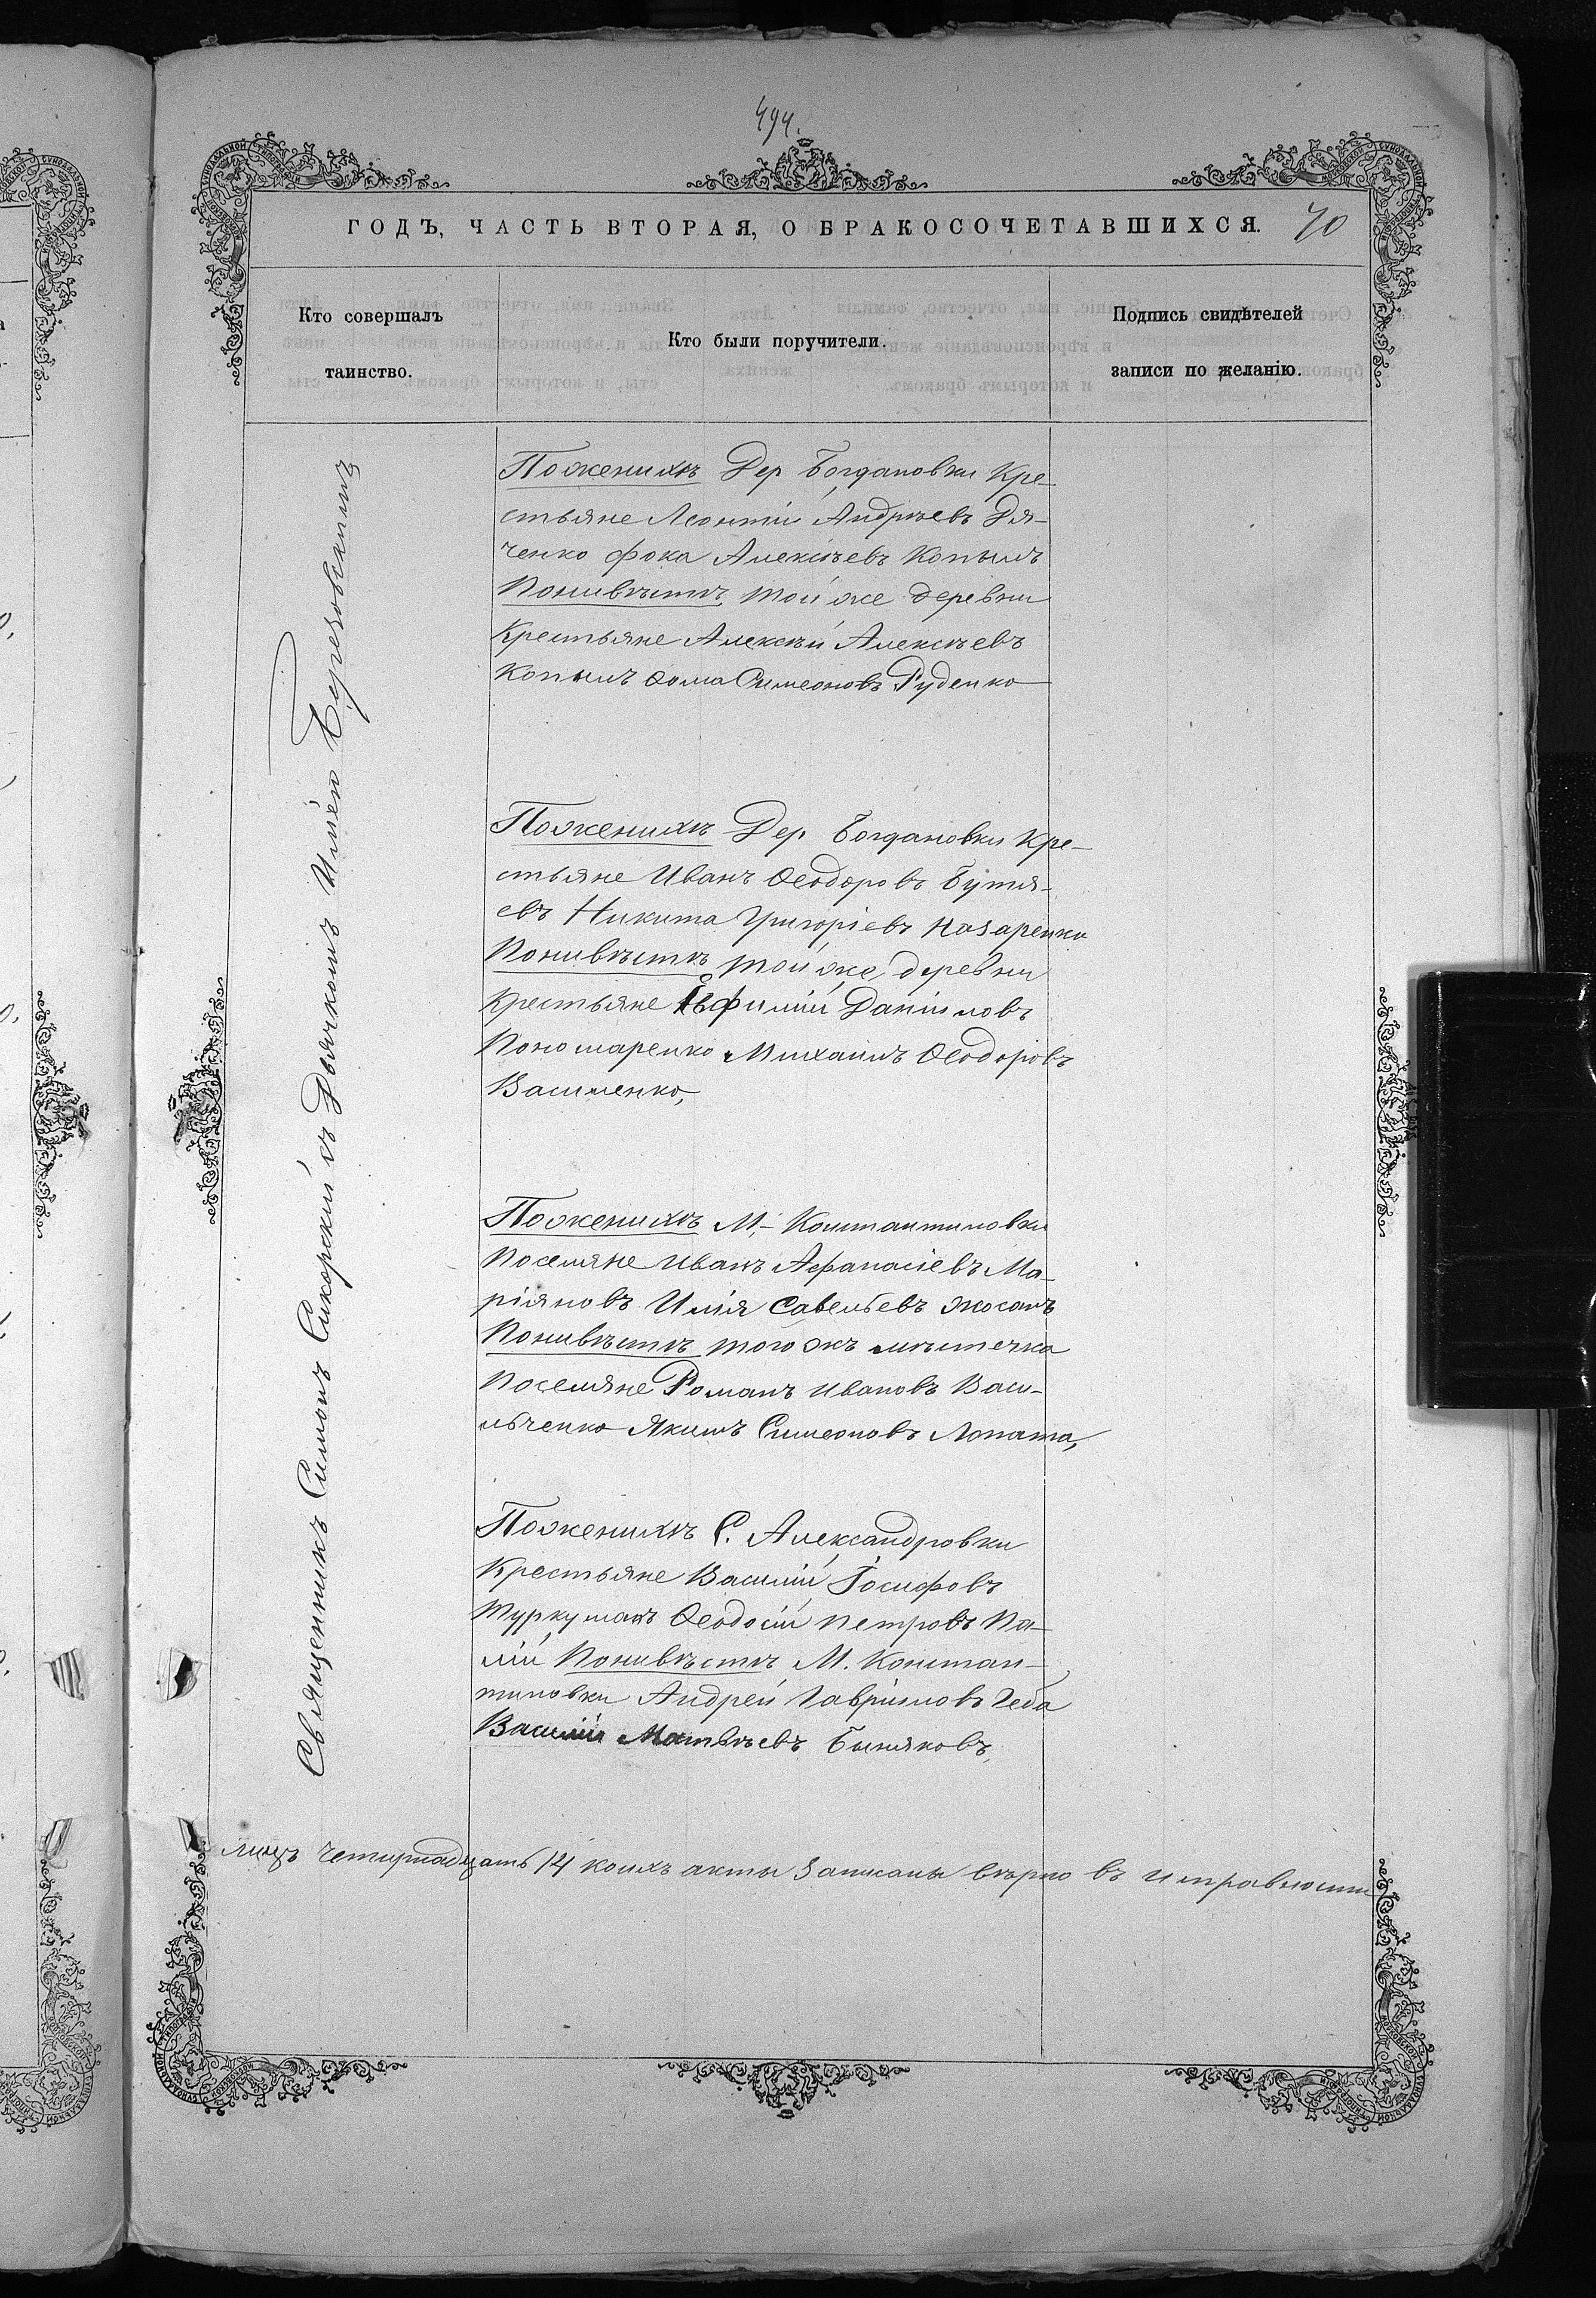 494.
ГОДЪ, ЧАСТЬ ВТОРАЯ, О БРАКОСОЧЕТАВШИХСЯ. 70
Кто совершалъ
таинство.
Кто были поручители.
Подпись свидѣтелей
записи по желанію.
Священникъ Симонъ Сикорскій съ Дьячкомъ Иліею Березовскимъ
По женихѣ Дер Богдановки Кре-
стьяне Леонтій Андрѣевъ Дя-
ченко Фока Алексѣевъ Копылъ
По нивѣстѣ той же деревни
Крестьяне Алексѣй Алексѣевъ
Копылъ Ѳома Симеоновъ Руденко
По женихѣ Дер Богдановки Кре-
стьяне Иванъ Ѳеодоровъ Бутя-
евъ Никита Григоріевъ Назаренко
По нивѣстѣ той же деревни
Крестьяне Ефимій Даніиловъ
Пономаренко Михаилъ Ѳеодоровъ
Василенко,
По женихѣ М,- Константиновки
Поселяне Иванъ Афанасіевъ Ма-
ріяновъ Илія Савельевъ Жосанъ
По нивѣстѣ того жъ мѣстечка
Поселяне Романъ Ивановъ Васи-
льченко Якимъ Симеоновъ Лопата,
По женихѣ С. Александровки
Крестьяне Василій Іосифовъ
Туркуманъ Ѳеодосій Петровъ Па-
лій По нивѣстѣ М. Констан-
тиновки Андрей Гавріиловъ
Василій Матвѣевъ
лицъ Четырнадцать 14 коихъ акты записаны вѣрно въ исправности